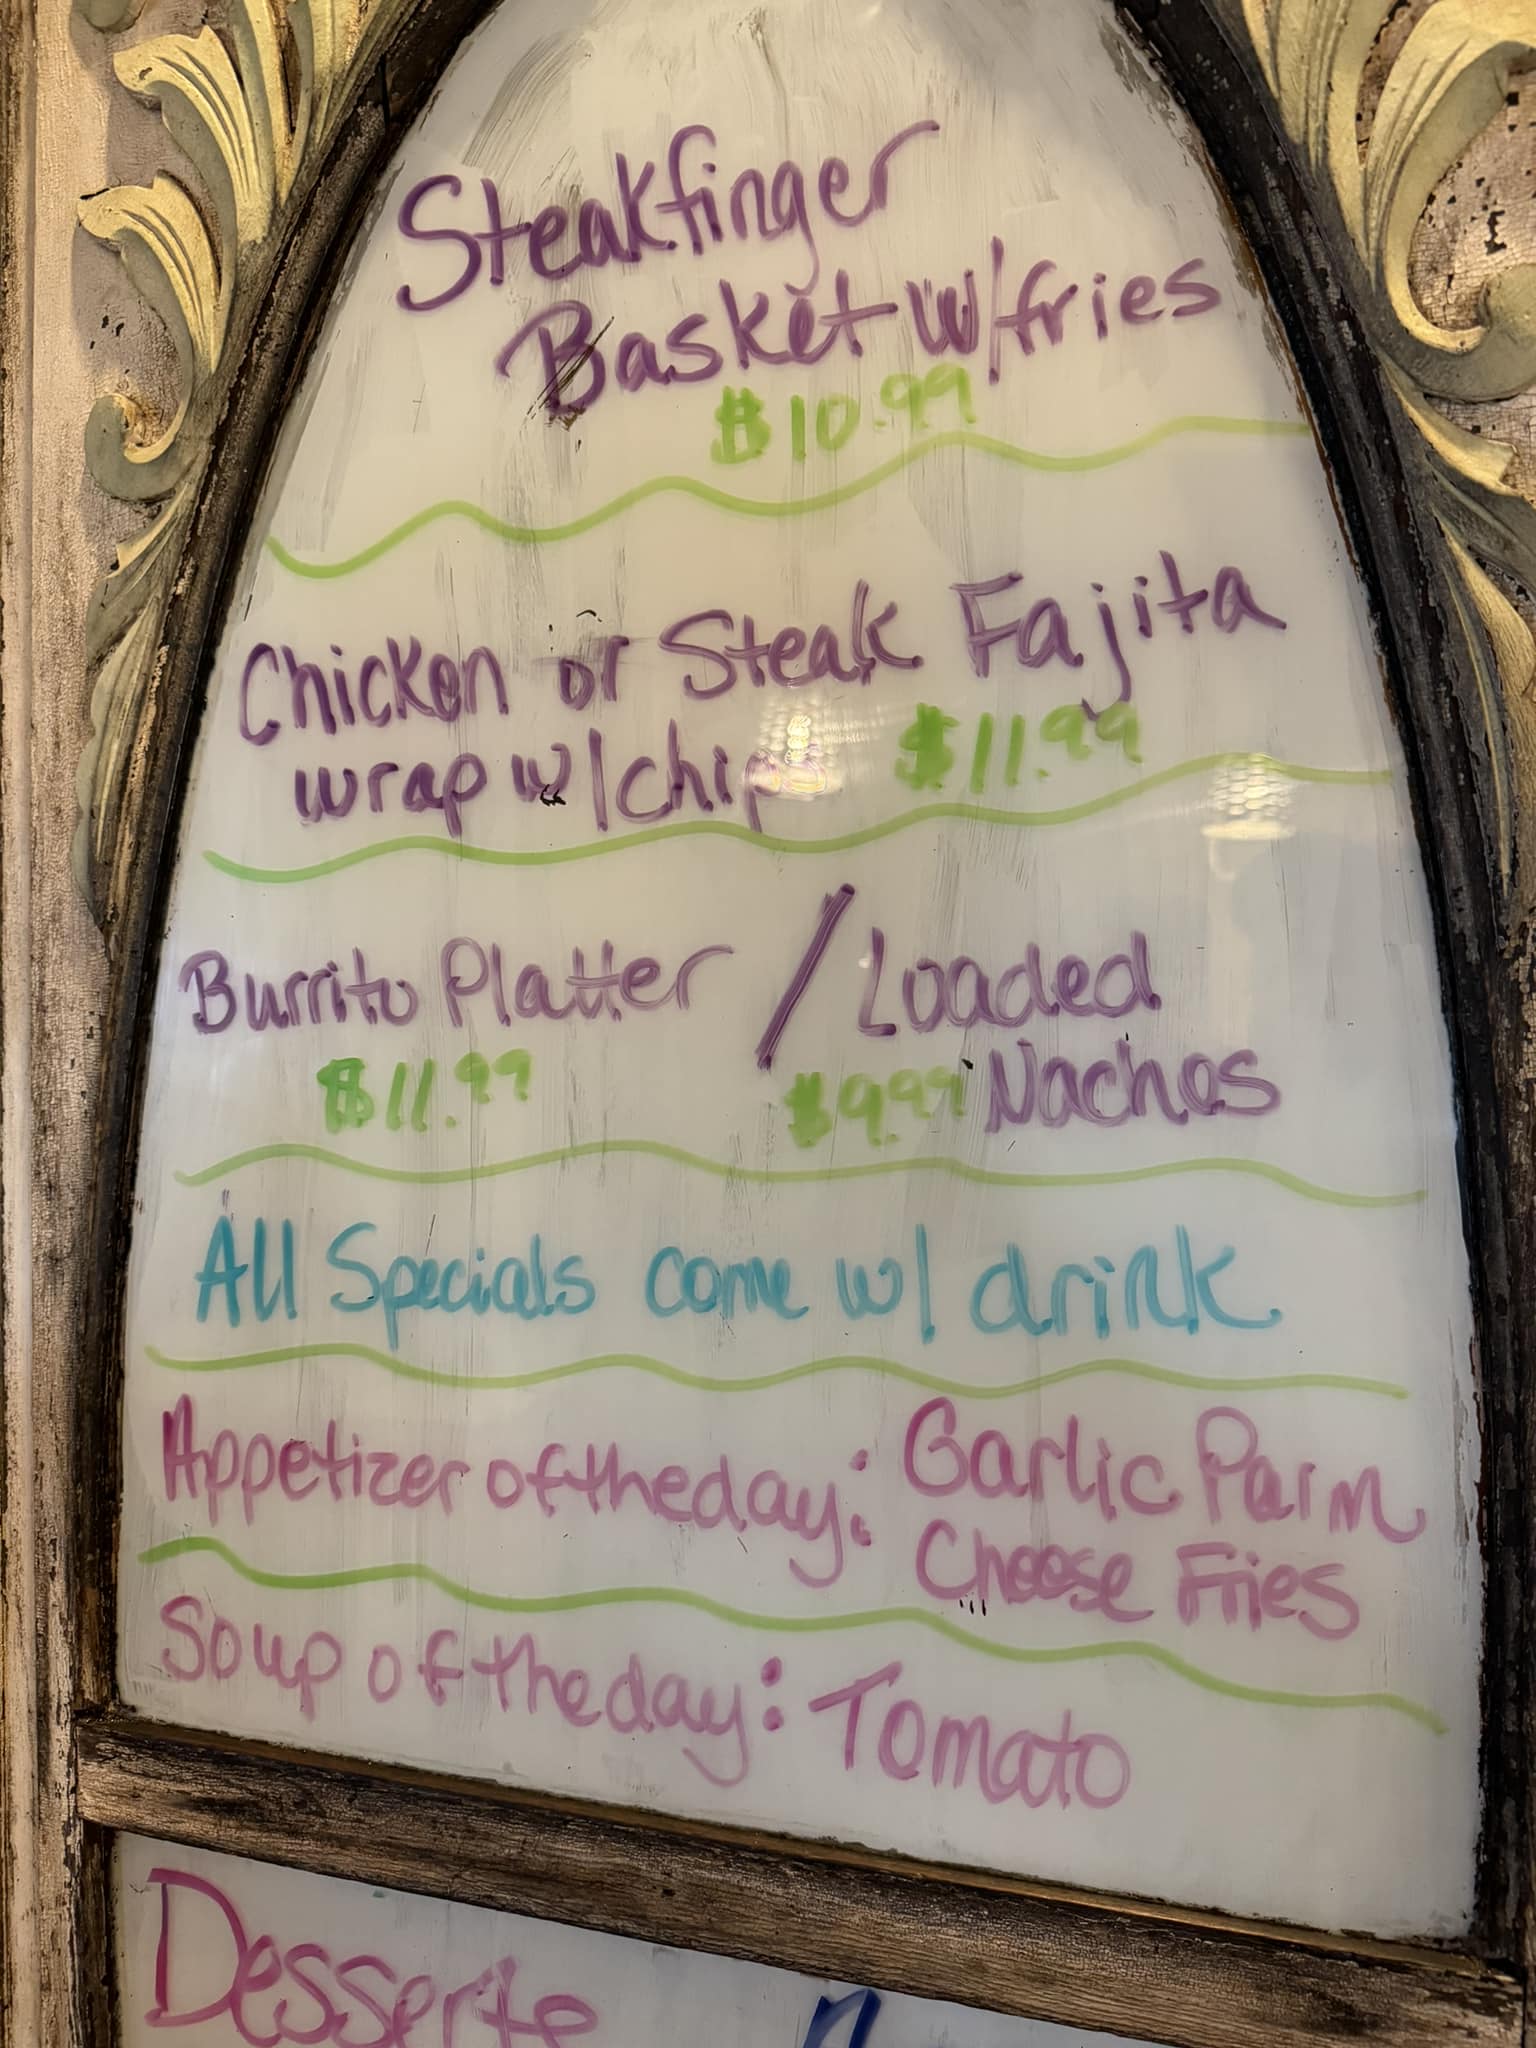 Steakfinger
Basket w/fries
$10.99
Chicken or Steak Fajita
wrap w/chips $11.99
Burrito Platter / Loaded
$11.99 $9.99 Nachos
All Specials come w/ drink
Appetizer of the day: Garlic Parm
Cheese Fries
Soup of the day: Tomato
Desserts